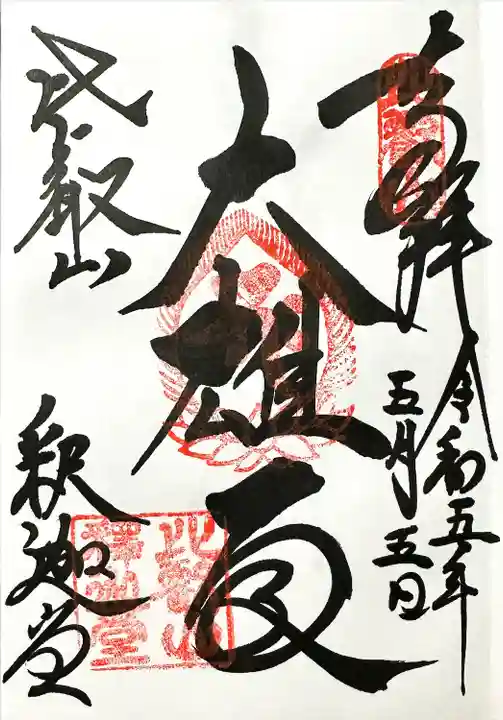 奉拝
令和五年
五月五日
大雄殿
比叡山
釈迦堂
比叡山
釋迦堂